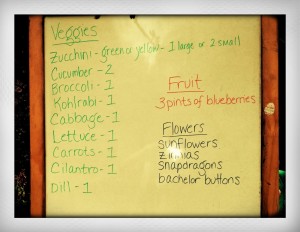 Veggies
Zucchini - green or yellow - 1 large or 2 small
Cucumber - 2
Broccoli - 1
Kohlrabi - 1
Cabbage - 1
Lettuce - 1
Carrots - 1
Cilantro - 1
Dill - 1
Fruit
3 pints of blueberries
Flowers
sunflowers
zinnias
snapdragons
bachelor buttons